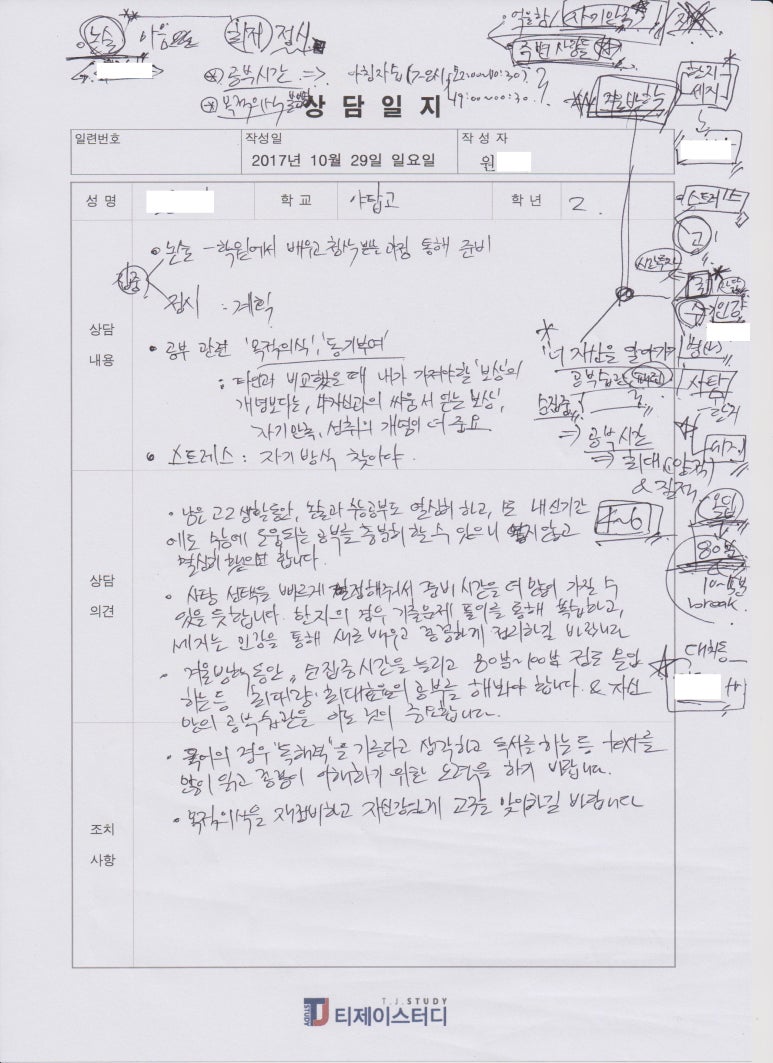 논술
정시
공부시간 ⇒ 아침자습
목적의식
상담일지
자기만족
주변 사람들
겨울방학
한지
세지
일련번호
작성일
2017년 10월 29일 일요일
작성자
원
성명
학교
야탑고
학년
2.
상담
내용
• 논술 - 학원에서 배우고 첨삭 받는 과정 통해 준비
집중
정시 : 계획
• 공부 관련 '목적의식', '동기부여'
: 타인과 비교했을 때 내가 가져야할 '보상'의
개념보다는, 내 자신과의 싸움서 얻는 '보상',
자기만족, 성취의 개념이 더 중요
• 스트레스 : 자기방식 찾아야.
스트레스
시간투자
'너 자신을 알아가기'
공부습관
순집중
⇒ 공부시간
⇒ 최대 (양적)
& 질적
사탐
세지
몰입
80분
10분
break
4~6
상담
의견
• 남은 고2 생활동안, 논술과 학공부도 열심히 하고, 또 내신기간
에도 수능에 도움되는 공부를 충분히 할 수 있으니 않고
열심히 했으면 합니다.
• 사탐 선택을 빠르게 결정해줘서 준비 시간을 더 많이 가질 수
있을 듯합니다. 한지의 경우 기출문제 풀이를 통해 복습하고,
세지는 인강을 통해 새로 배우고 꼼꼼하게 정리하길 바랍니다
• 겨울방학 동안, 순집중시간을 늘리고 80분~100분 정도 몰입
하는 등 '최대량·최대효율'의 공부를 해봐야 합니다. & 자신
만의 공부습관을 아는 것이 중요합니다.
조치
사항
• 국어의 경우 '독해력'을 기른다고 생각하고 독서를 하는 등 text를
많이 읽고 이해하기 위한 노력을 하기 바랍니다.
• 목적의식을 재정비하고 자신감있게 고3을 맞이하길 바랍니다
T.J.STUDY
TJ STUDY 티제이스터디